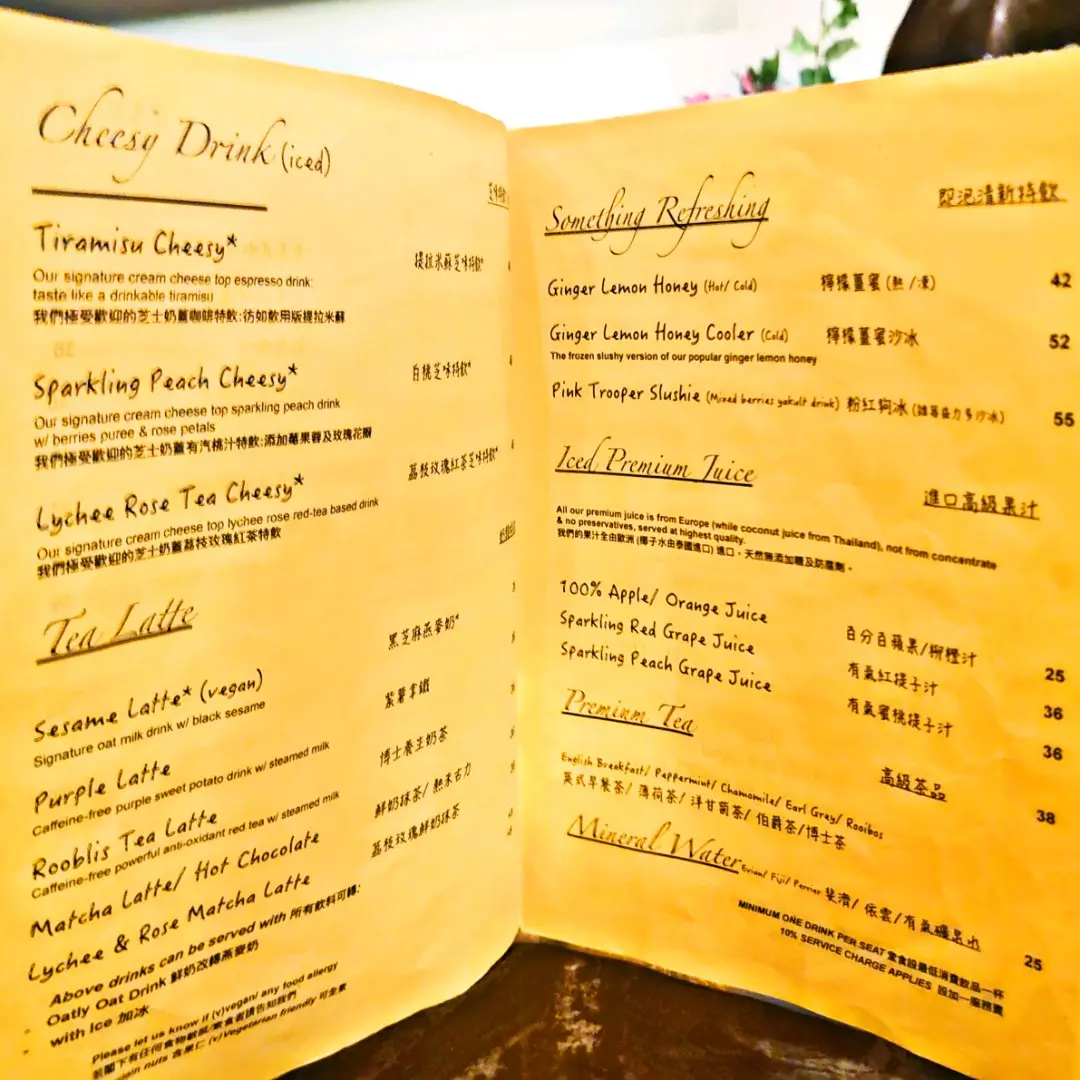 Cheesy Drink (iced)
Tiramisu Cheesy* 提拉米蘇芝味特飲*
Our signature cream cheese top espresso drink:
taste like a drinkable tiramisu
我們極受歡迎的芝士奶蓋咖啡特飲:彷如飲用版提拉米蘇
Sparkling Peach Cheesy* 白桃芝味特飲*
Our signature cream cheese top sparkling peach drink
w/ berries puree & rose petals
我們極受歡迎的芝士奶蓋有汽桃汁特飲:添加莓果蓉及玫瑰花瓣
Lychee Rose Tea Cheesy* 荔枝玫瑰紅茶芝味特飲*
Our signature cream cheese top lychee rose red-tea based drink
我們極受歡迎的芝士奶蓋荔枝玫瑰紅茶特飲
Tea Latte
Sesame Latte* (vegan) 黑芝麻燕麥奶*
Signature oat milk drink w/ black sesame
Purple Latte 紫薯拿鐵
Caffeine-free purple sweet potato drink w/ steamed milk
Rooblis Tea Latte 博士養生奶茶
Caffeine-free powerful anti-oxidant red tea w/ steamed milk
Matcha Latte/ Hot Chocolate 鮮奶抹茶/ 熱朱古力
Lychee & Rose Matcha Latte 荔枝玫瑰鮮奶抹茶
Above drinks can be served with 所有飲料可轉:
- Oatly Oat Drink 鮮奶改轉燕麥奶
- with Ice 加冰
Please let us know if (v)vegan/ any food allergy
若閣下有任何食物敏感/素食者請告知我們
nuts 含果仁 (v)Vegetarian friendly 可全素
Something Refreshing 即泡清新特飲
Ginger Lemon Honey (Hot/ Cold) 檸檬薑蜜 (熱 /凍) 42
Ginger Lemon Honey Cooler (Cold) 檸檬薑蜜沙冰 52
The frozen slushy version of our popular ginger lemon honey
Pink Trooper Slushie (Mixed berries yakult drink) 粉紅狗冰 (雜莓益力多沙冰) 55
Iced Premium Juice 進口高級果汁
All our premium juice is from Europe (while coconut juice from Thailand), not from concentrate
& no preservatives, served at highest quality.
我們的果汁全由歐洲 (椰子水由泰國進口) 進口，天然無添加糖及防腐劑。
100% Apple/ Orange Juice 百分百蘋果/柳橙汁 25
Sparkling Red Grape Juice 有氣紅提子汁 36
Sparkling Peach Grape Juice 有氣蜜桃提子汁 36
Premium Tea 高級茶品
English Breakfast/ Peppermint/ Chamomile/ Earl Grey/ Rooibos 38
英式早餐茶/ 薄荷茶/ 洋甘菊茶/ 伯爵茶/博士茶
Mineral Water Evian/ Fiji/ Perrier 斐濟/ 依雲/有氣礦泉水 25
MINIMUM ONE DRINK PER SEAT 堂食設最低消費飲品一杯
10% SERVICE CHARGE APPLIES 設加一服務費